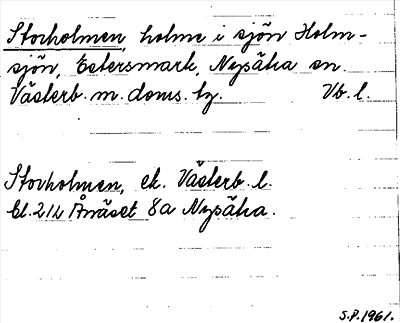 Storholmen, holme i sjön Holm-
sjön, Estersmark, Nysätra sn.
Västerb. m. doms. tg. Vb. l.
Storholmen, ek. Västerb. l.
Bl. 212 Ånäset 8a Nysätra.
S.P. 1961.